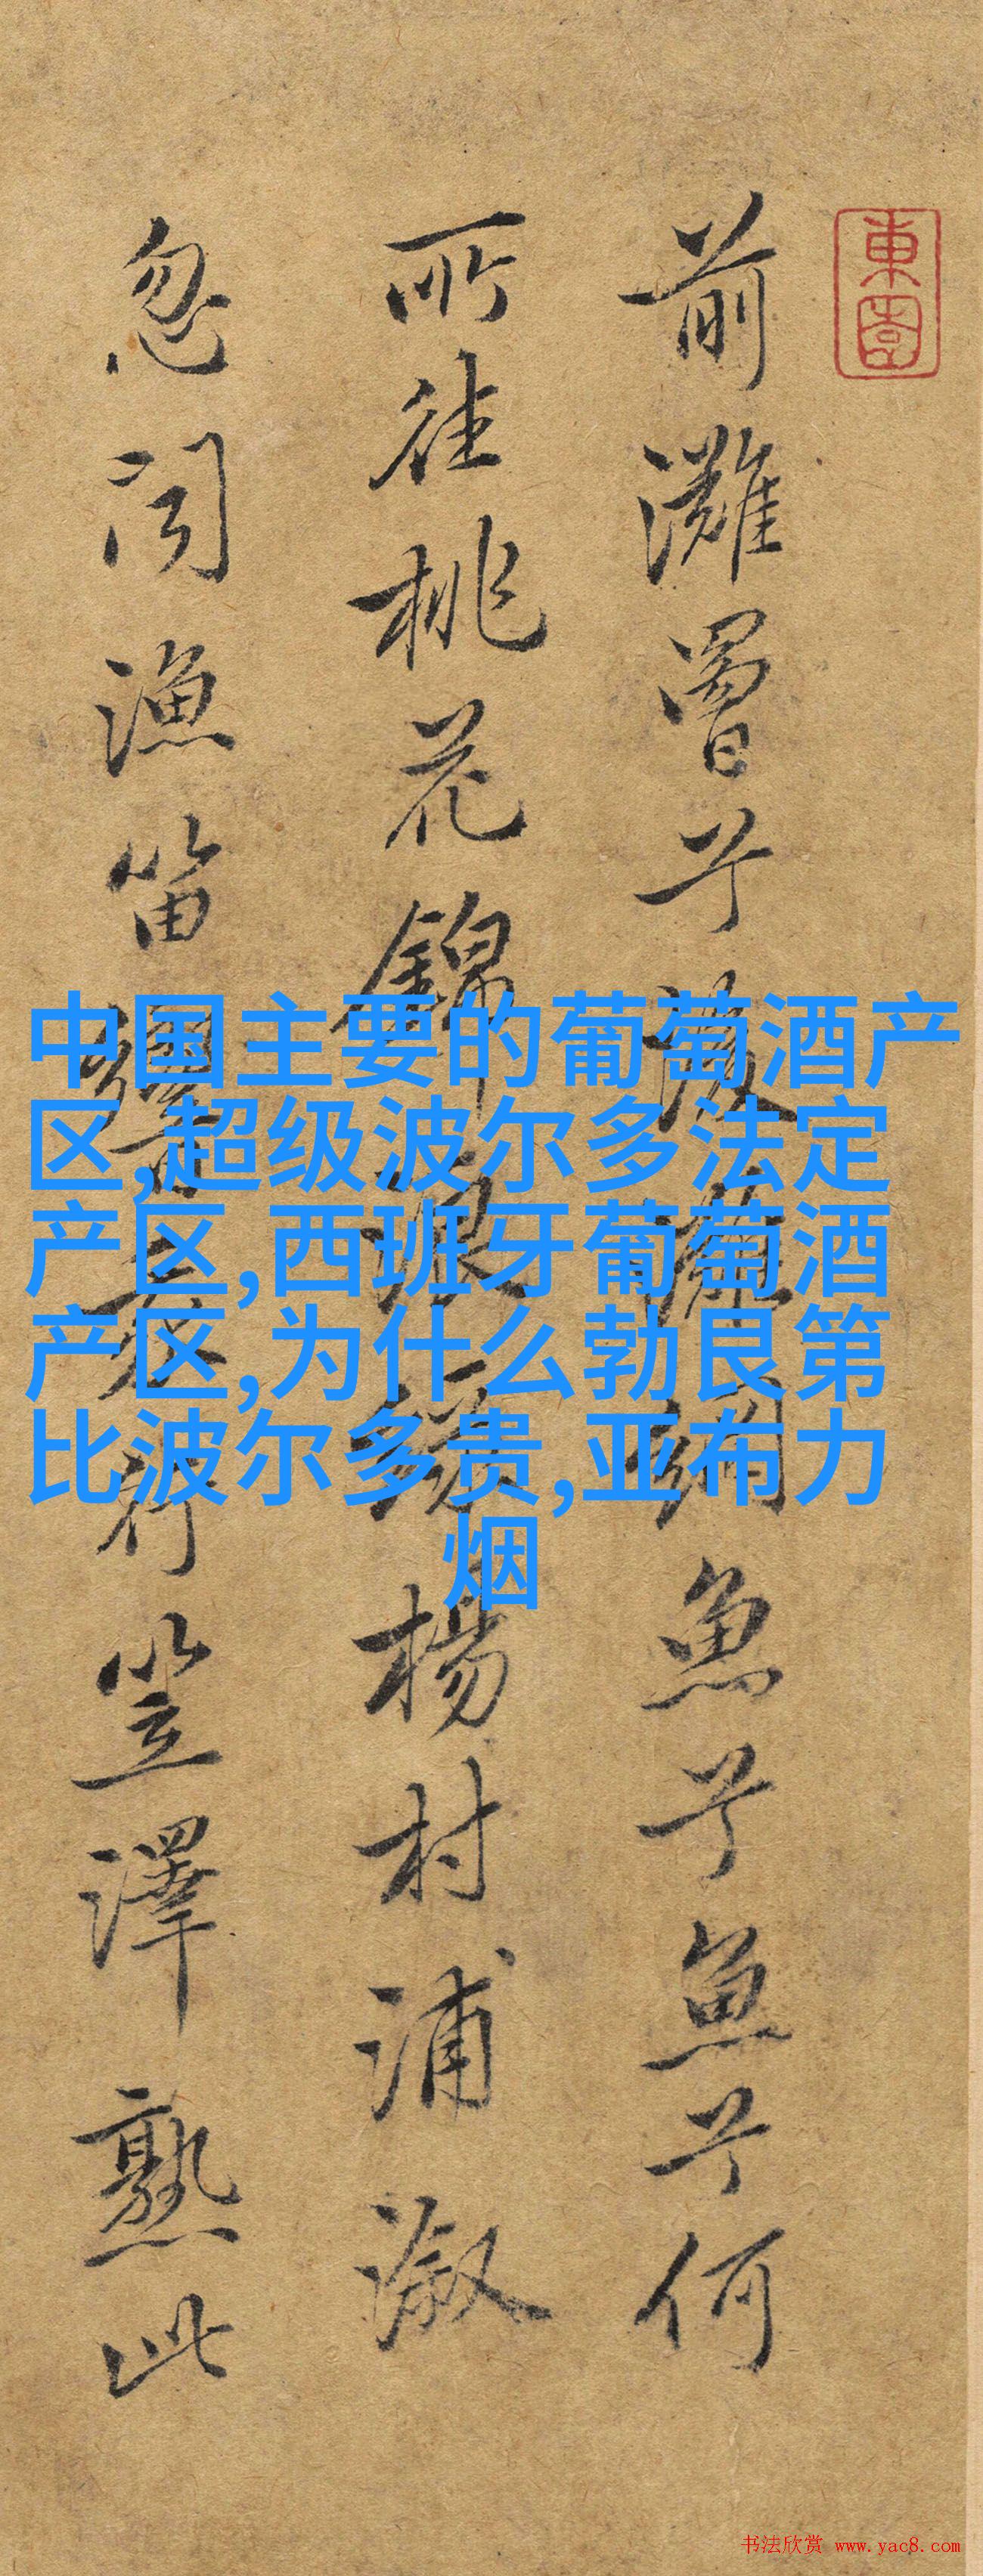 東園
前灘罾兮後灘網魚兮魚兮何
所往桃花錦浪綠楊村浦溆
忽聞漁笛
行笠澤熟此
中国主要的葡萄酒产
区,超级波尔多法定
产区,西班牙葡萄酒
产区,为什么勃艮第
比波尔多贵,亚布力
烟
书法欣赏 www.yac8.com